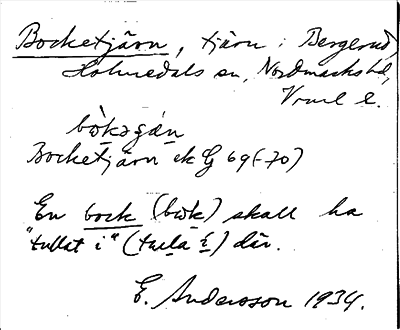 Bocketjärn, tjärn i Bergerud,
Holmedals sn, Nordmarks hd,
Vrml l.
bòkəgæ̀n
Bocketjärn ek G 69 (-70)
En bock (bòk) skall ha
"tullat i" (tuɩla í) där.
E. Andersson 1934.